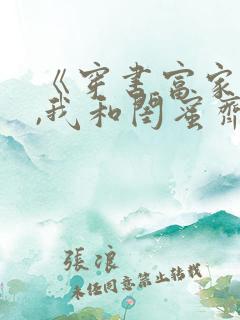 《穿书富家
,我和闺蜜齐
張浪
未经同意禁止转载